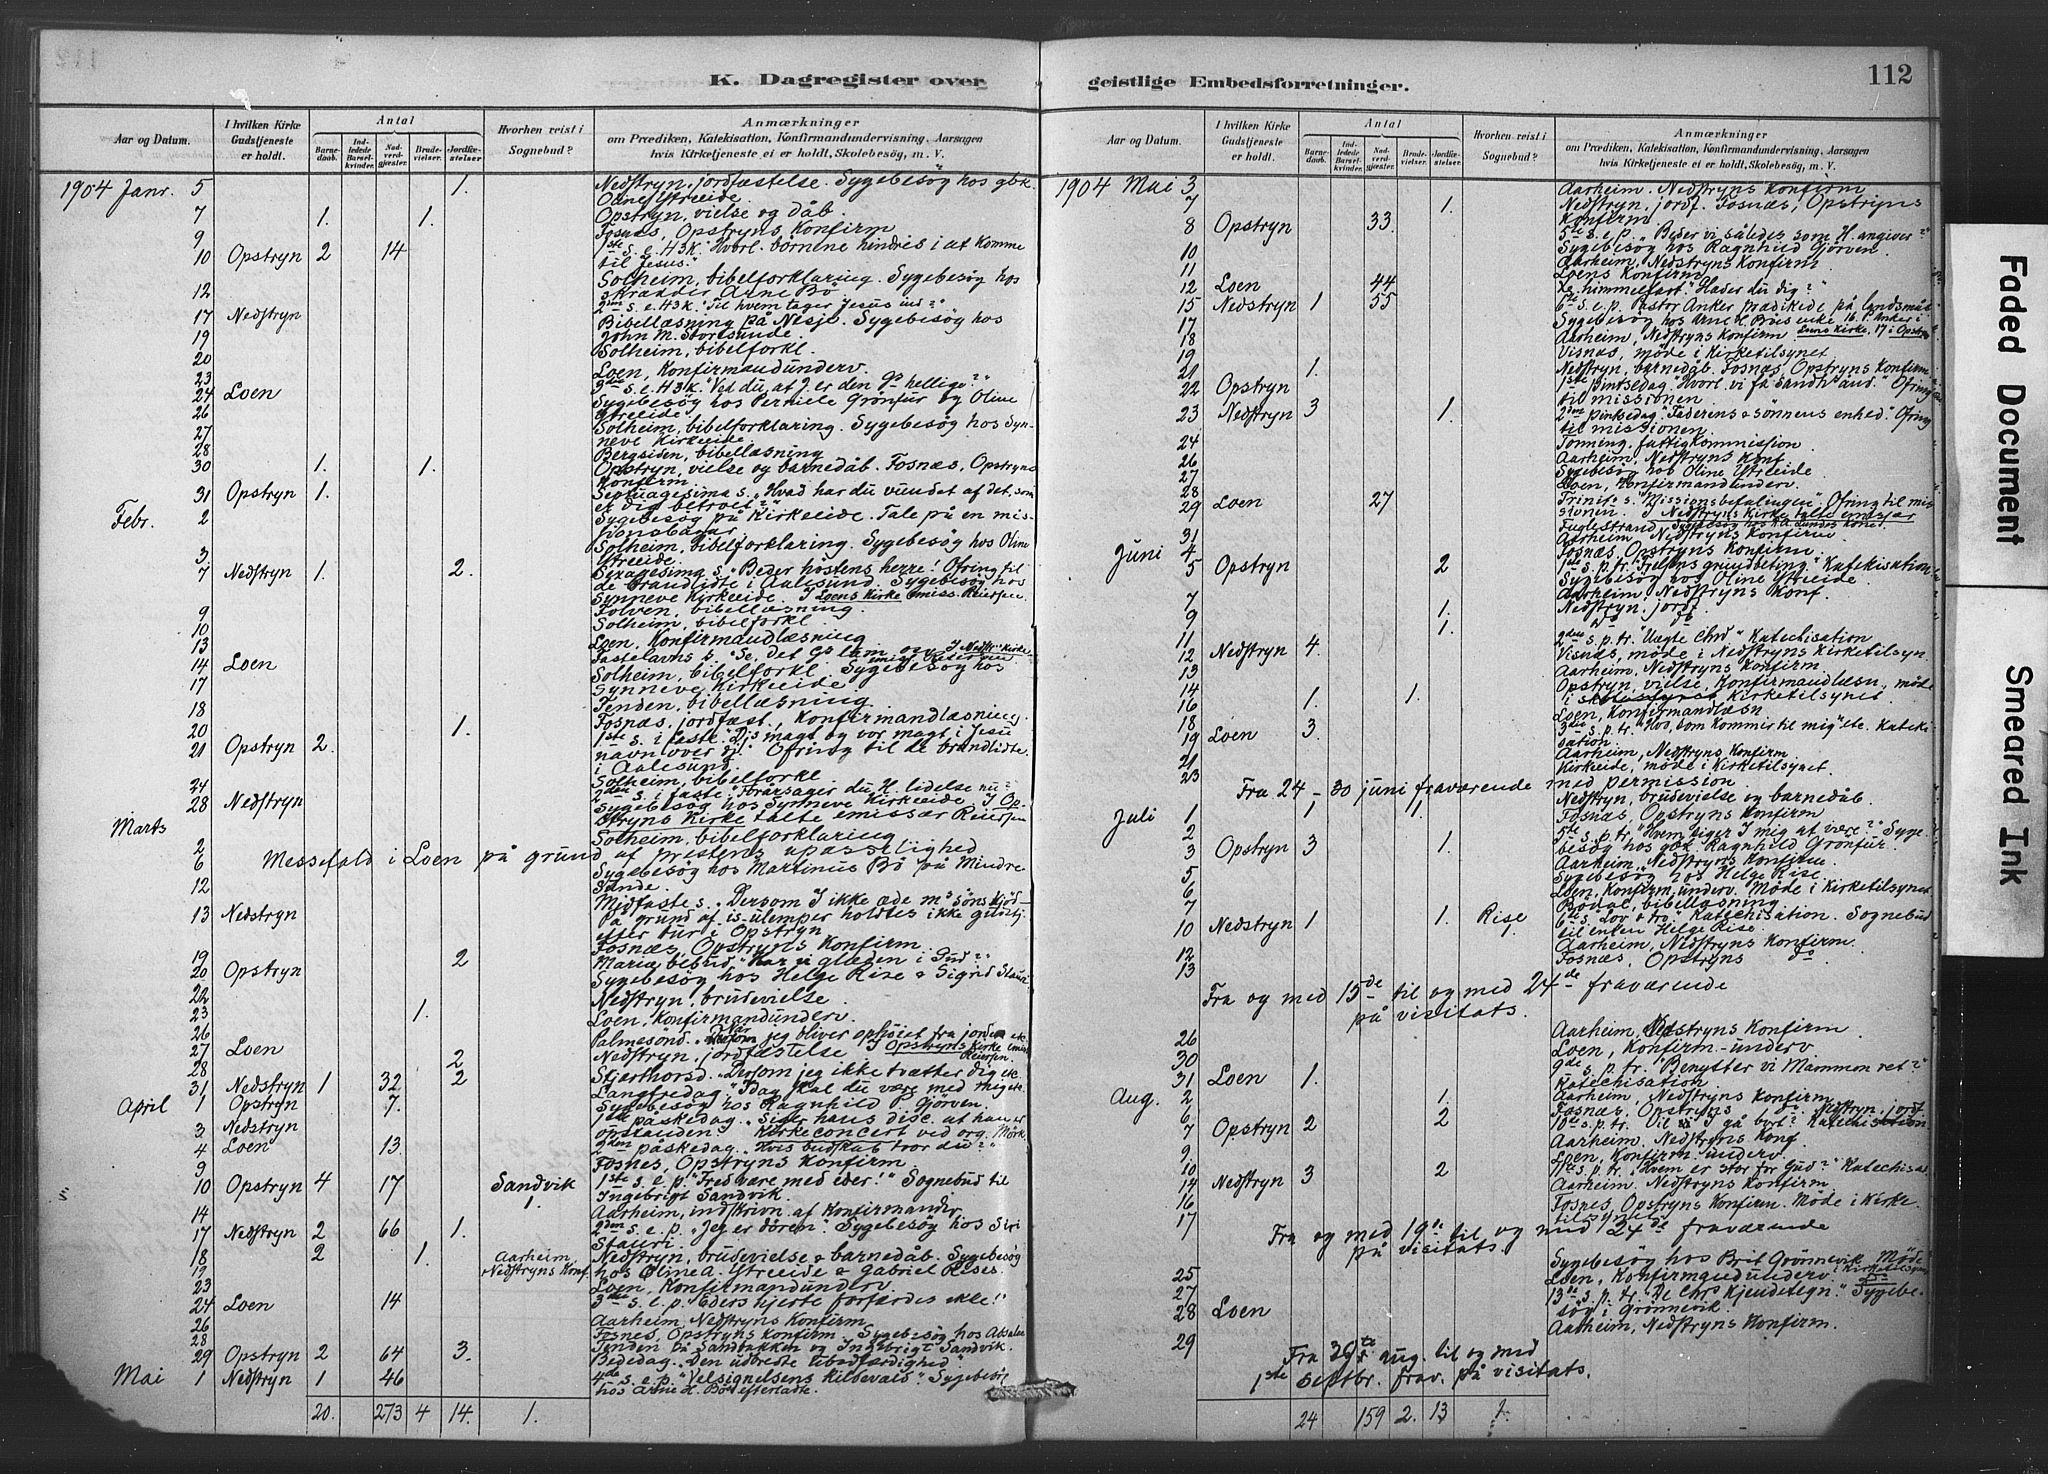 K. Dagregister over
Aar og Datum.
I hvilken Kirke Gudstjeneste er holdt.
Antal
Barnedaab.
Indledede Barselkvinder.
Nadverdgjester.
Brudevielser.
Jordfæstelser.
Hvorhen reist i Sognebud?
Anmærkninger
om Prædiken, Katekisation, Konfirmandundervisning, Aarsagen
hvis Kirketjeneste ei er holdt, Skolebesög, m. V.
1904 Janr. 5 1. Nedstryn, jordfæstelse. Sygebesøg hos gbk.
Ytreeide
7 1. 1. Opstryn, vielse og dåb.
9 Fosnæs, Opstryns Konfirm
10 Opstryn 2 14 1ste s. e. H3K. "Hvorl. børnene hindres i at komme
til Jesus."
Solheim, bibelforklaring. Sygebesøg hos
12 skrædder Arne Bø
17 Nedstryn 2den s. e. H3K. "Til hvem tager Jesus ind?"
Bibellæsning på Nesje. Sygebesøg hos
19 John M. Storesunde
20 Solheim, bibelforkl.
23 Loen, Konfirmandunderv.
24 Loen 3die s. e. H3K. "Ved du, at J. er den Gs hellige?"
26 Sygebesøg hos Pernele Grønfur og Oline
Ytreeide
27 Solheim, bibelforklaring. Sygebesøg hos Syn-
neve Kirkeeide
28 Bergsiden, bibellæsning
30 1. 1. Opstryn, vielse og barnedåb. Fosnæs, Opstryns
Konfirm.
31 Opstryn 1. Septuagesima s. "Hvad har du vundet af det, som
er dig betroet?"
Febr. 2 Sygebesøg på Kirkeeide. Tale på en mis-
jonsbazar
3 Solheim, bibelforklaring. Sygebesøg hos Oline
Ytreeide.
7 Nedstryn 1. 2. Sexagesima s. "Beder høstens herre! Ofring til
de brandlidte i Aalesund. Sygebesøg hos
Synneve Kirkeeide. I Loens Kirke emiss. Reiersen
9 Folven, bibellæsning.
10 Solheim, bibelforkl.
13 Loen, Konfirmandlæsning
14 Loen Fastelavns s. "Se, det Gs lam" I Nedstr. Kirke
17 Solheim, bibelforkl. Sygebesøg hos
Synneve Kirkeeide
18 Tenden, bibellæsning
20 1. Fosnæs, jordfæst., Konfirmandlæsning.
21 Opstryn 2. 1ste s. i faste. "Djs magt og vor magt i Jesu
navn over dj." Ofring til de brandlidte
i Aalesund.
24 Solheim, bibelforkl.
28 Nedstryn 2den s. i faste. "Forårsager du H. lidelse nu?"
Sygebesøg hos Synneve Kirkeeide I Op-
stryns Kirke talte emissær Reiersen
Marts 2 Solheim, bibelforklaring
6 Messefald i Loen på grund af prestens upasselighed
12 Sygebesøg hos Martinus Bø på Mindre
Sunde.
13 Nedstryn Midfaste s. "Dersom I ikke æde ms søns kjød"
På grund af is-ulemper holdtes ikke gudstj.
efter tur i Opstryn
19 Fosnæs, Opstryns Konfirm.
20 Opstryn 2 Mariæ bebud. "Har vi glæden i Gud?"
22 Sygebesøg hos Helge Rise & Sigrid Stauri
23 1. Nedstryn, brudevielse.
26 Loen, Konfirmandunderv
27 Loen Palmesønd. "Når jeg bliver ophøiet fra jorden etc.
28 2 Nedstryn, jordfæstelse I Opstryns Kirke emiss. Reiersen.
31 Nedstryn 1 32 2 Skjærthorsd. "Dersom jeg ikke tvætter dig etc.
April 1 Opstryn 7. Langfredag, "Idag skal du være med mig etc.
Sygebesøg hos Ragnhild P Gjørven.
3 Nedstryn 1ste påskedag. "Siger hans disc. at han er
opstanden." Kirkeconcert ved org. Mørk.
4 Loen 13. 2den påskedag. "Hvis budskab tror du?"
9 Fosnes, Opstryns Konfirm
10 Opstryn 4 17 Sandvik 1. 1ste s. e. p. "Fred være med eder!" Sognebud til
Ingebrigt Sandvik.
14 Aarheim, indskrivn. af Konfirmander
17 Nedstryn 2 66 1. 2den s. e. p. "Jeg er døren". Sygebesøg hos Siri
Stauri.
18 2 1. Nedstryn, brudevielse & barnedåb. Sygebesøg
19 Aarheim, Nedstryns Konf. hos Oline A. Ytreeide & Gabriel Rises.
23 Loen, Konfirmandunderv.
24 Loen 14 3die s. e. p. "Eders hjerte forfærdes ikke!"
26 Aarheim, Nedstryns Konfirm
28 Fosnes, Opstryns Konfirm. Sygebesøg hos
Tenden på Sandbakken og Ingebrigt Sandvik.
29 Opstryn 2 64 3. Bededag. "Den ubodfærdighed"
Mai 1 Nedstryn 1 46 4de s. e. p. "Velsignelsens kildevæld". Sygebesøg
hos Arne H. Bøs efterladte.
20. 273 4 14. 1.
geistlige Embedsforretninger.
112
Aar og Datum.
I hvilken Kirke Gudstjeneste er holdt.
Antal
Barnedaab.
Indledede Barselkvinder.
Nadverdgjester.
Brudevielser.
Jordfæstelser.
Hvorhen reist i Sognebud?
Anmærkninger
om Prædiken, Katekisation, Konfirmandundervisning, Aarsagen
hvis Kirketjeneste ei er holdt, Skolebesög, m. V.
1904 Mai 3 Aarheim. Nedstryns Konfirm
7 1. Nedstryn, jordf. Fosnæs, Opstryns
Konfirm
8 Opstryn 33. 5te s. e. p. "Beder vi således som H. angiver?"
10 Sygebesøg hos Ragnhild Gjørven.
Aarheim, Nedstryns Konfirm
11 Loens Konfirm
12 Loen 44 Kr. himmelfart "Hader du dig?"
15 Nedstryn 1 55 6te s. e. p. Pastor Anker prædikede på landsmål
17 Sygebesøg hos Arne H. Bøes enke 16. P. Anker i
18 Aarheim, Nedstryns Konfirm Loens Kirke, 17 i Opstryn
19 Visnæs, møde i Kirketilsynet
21 1. Nedstryn, barnedåb. Fosnæs, Opstryns Konfirm
22 Opstryn 1ste pintsedag. "Hvorl. vi få Sandh. ånd." Ofring
til missionen
23 Nedstryn 3 1. 2den pintsedag. "Faderens & sønnens enhed." Ofring
til missionen.
24 Tonning, fattigkommission
26 Aarheim, Nedstryns Konf.
27 Sygebesøg hos Oline Ytreeide
28 Loen, Konfirmandunderv.
29 Loen 27 Trinit. s. "Missionsbefalingen" Ofring til mis-
sionen. I Nedstryns Kirke talte emissær
Fuglestrand Sygebesøg hos R.A. Sundes kone.
31 Aarheim Nedstryns Konfirm
Juni 4 Fosnæs, Opstryns Konfirm.
5 Opstryn 2 1ste s. p. tr. "Frelsens grundbeting." Katekisation
Sygebesøg hos Oline Ytreeide.
7 Aarheim Nedstryns Konf.
9 1. Nedstryn. jordf.
11 1. do do
12 Nedstryn 4. 2den s. p. tr. "Uægte Chrd" Katechisation
Visnæs, møde i Nedstryns Kirketilsyn
13 Aarheim. Nedstryns Konfirm
14 1. 1. Opstryn, vielse, Konfirmandlæsn., møde
16 i Kirketilsynet
18 Loen, Konfirmandlæsn
19 Loen 3. 3die s. p. tr. "Hos, som kommer til mig" etc. Kateki-
sation
21 Aarheim, Nedstryns Konfirm
23 Kirkeeide, møde i Kirketilsynet.
Fra 24 - 30 juni fraværende med permission
Juli 1 1 1. Nedstryn, brudevielse og barnedåb.
2 Fosnæs, Opstryns Konfirm
3 Opstryn 3 1. 5te s. p. tr. "Hvem siger I mig at være?" Syge-
besøg hos gbk. Ragnhild Grønfur.
5 Aarheim, Nedstryns Konfirm.
6 Sygebesøg hos Helge Rise.
7 Loen, Konfirm. underv. Møde i Kirketilsynet
Bødal, bibellæsning
10 Nedstryn 1 1. Rise 1. 6te s. "Lov & tro" Katechisation. Sognebud
til enken Helge Rise.
12 Aarheim, Nedstryns Konfirm.
13 Fosnæs, Opstryns do
Fra og med 15de til og med 24de fraværende
på visitats.
26 Aarheim, Nedstryns Konfirm
30 Loen, Konfirm.-underv
31 Loen 1. 9de s. p. tr. "Benytter vi Mammon ret?"
Katechisation
Aug. 2 1. Aarheim, Nedstryns Konfirm
6 2 Fosnæs, Opstryns do. Nedstryn, jordf.
7 Opstryn 2 2 10de s. p. tr. "Vil I gå bort?" Katechisation
9. Aarheim. Nedstryns Konf.
10 Loen, Konfirm. underv.
14 Nedstryn 3 2 11te s. p. tr. "Hvem er stor for Gud?" Katechisat.
16 Aarheim. Nedstryns Konfirm
17 Fosnes, Opstryns Konfirm. Møde i Kirke-
tilsynet
Fra og med 19de til og med 24de fraværende
på visitats
25 Sygebesøg hos Brit Grønnevik Møde i Kirketilsynet
27 Loen, Konfirmandunderv.
28 Loen 13de s. p. tr. "De Chrs kjendetegn." Sygebe-
søg i Grønnevik
29 Aarheim, Nedstryns Konfirm.
Fra aug. til og med
1ste septbr. frav. på visitats.
24 159 2. 13 1.
Faded Document
Smeared Ink